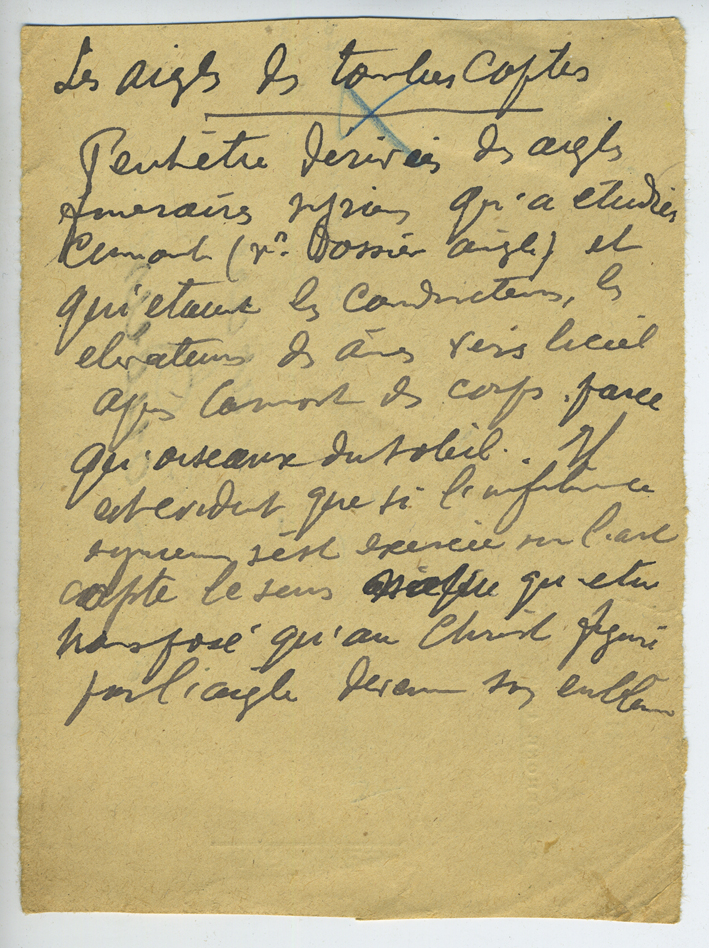 Les aigles des tombes Coptes
Peut être derivées des aigles
funeraires syriens qu'a étudiés
Cumont (vr Dossier aigle) et
qui etaient les conducteurs, les
elevateurs des âmes vers le ciel
après la mort des corps . parce
qu'oiseaux du soleil . Il
est evident que si l'influence
syrienne s'est exercée sur l'art
copte le sens qu'etre
transposé qu'au Christ figuré
par l'aigle devenu son emblème